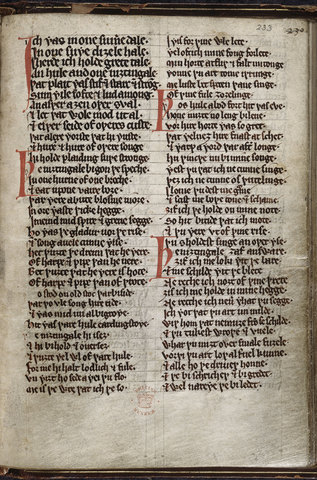 Ich was in one sumere dale
In one suþe diȝele hale
Iherde ich holde grete tale
An hule and one niȝtingale
Þat plait was stif & starc & strong
Sum wile softe & lud among
An aiþer aȝen oþer sval
& let þat vole mod ut al
& eiþer seide of oþeres custe
Þat alre worste þat hi wuste
& hure & hure of oþeres songe
Hi holde plaiding suþe stronge
Þe niȝtingale bigon þe speche
In one hurne of one breche
& sat up one vaire boȝe
Þar were abute blosme inoȝe
In ore waste þicke hegge
Imeind mid spire & grene segge
Ho was þe gladur vor þe rise
& song auele cunne wise
Bet þuȝte þe dreim þat he were
Of harpe & pipe þan he nere
Bet þuȝte þat he were ishote
Of harpe & pipe þan of þrote
Þo stod on old stoc þar biside
Þar þo vle song hire tide
& was mid iui al bigrowe
Hit was þare hule eardingstowe
Þe niȝtingale hi iseȝ
& hi bihold & ouerseȝ
& þuȝte wel vul of þare hule
For me hi halt lodlich & fule
Vnwiȝt ho sede awei þu flo
me is þe wrs þat ich þe so
Iwis for þine vule lete
Wel oft ich mine song forlete
min horte atfliþ & falt mi tonge
wonne þu art to me iþrunge
me luste bet speten þane singe
Of þine fule ȝoȝelinge
Þos hule abod fort hit was eve
ho ne miȝte no leng bileue
vor hire horte was so gret
þat wel neȝ hire fnast at schet
& warp a word þar after longe
Hu þincþe nu bi mine songe
West þu þat ich ne cunne singe
þeȝ ich ne cunne of writelinge
Ilome þu dest me grame
& seist me boþe tone & schame
ȝif ich þe holde on mine uote
So hit bitide þat ich mote
& þu were vt of þine rise
Þu sholdest singe an oþer wse
Þe niȝtingale ȝaf answare
ȝif ich me loki wit þe bare
& me schilde wit þe blete
Ne reche ich noȝt of þine þrete
ȝif ich me holde in mine hegge
ne recche ich neuer what þu segge
Ich wot þat þu art unmilde
wiþ hom þat ne muȝe from þe schilde
& þu tukest wroþe & vuele
whar þu miȝt over smale fuȝele
vorþi þu art loþ al fuel kunne
& alle ho þe driueþ honne
& þe bischricheþ & bigredet
& wel narewe þe biledet
233
230